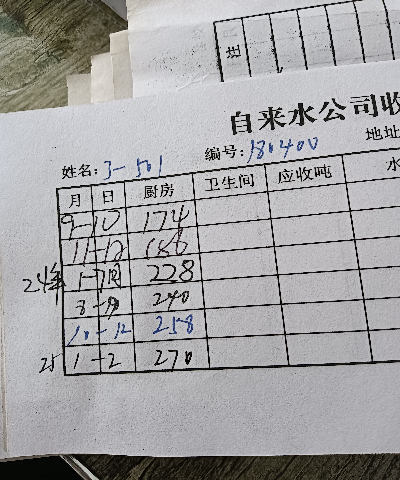 自来水公司收
姓名: 3-501 编号: 180400 地址
月 日 厨房 卫生间 应收吨 水
9-10 174
11-12 186
24年 1-7月 228
8-9 240
10-12 258
25 1-2 270